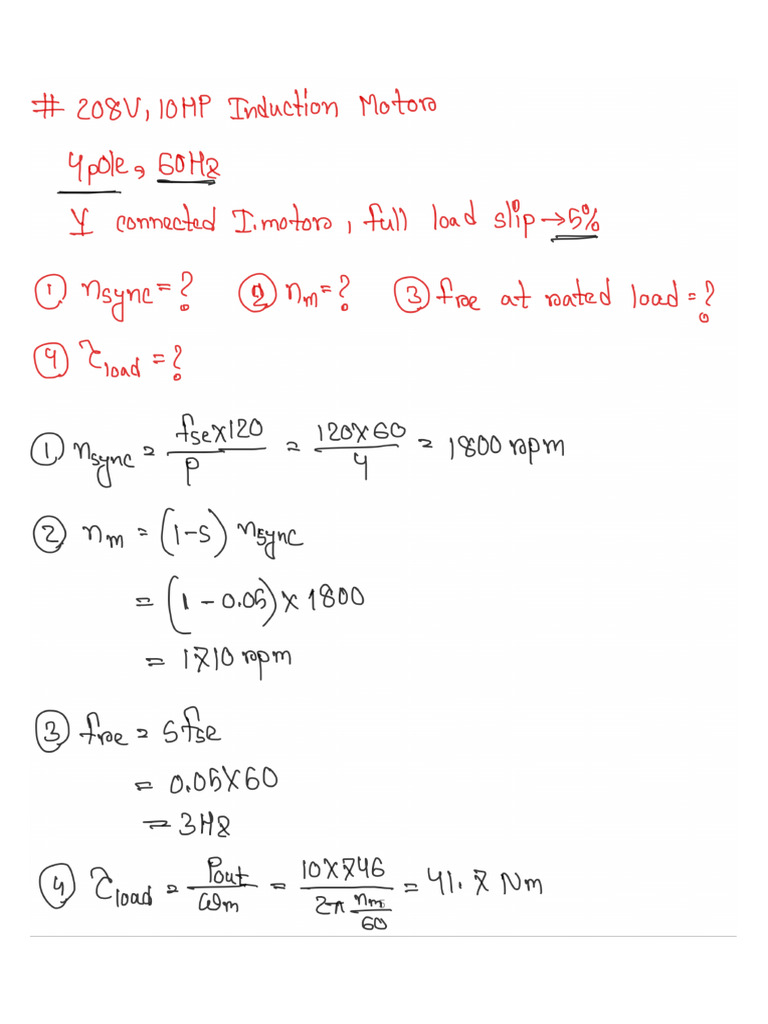 # 208V, 10HP Induction Motors
4 pole, 60Hz
Y connected I.motors, full load slip → 5%
① nsync = ? ② nm = ? ③ fre at rated load = ?
④ τload = ?
① nsync = fse×120 / P = 120×60 / 4 = 1800 rpm
② nm = (1-s) nsync
= (1-0.05) × 1800
= 1710 rpm
③ fre = sfse
= 0.05×60
= 3Hz
④ τload = Pout / ωm = 10×746 / 2π nm/60 = 41.7 Nm